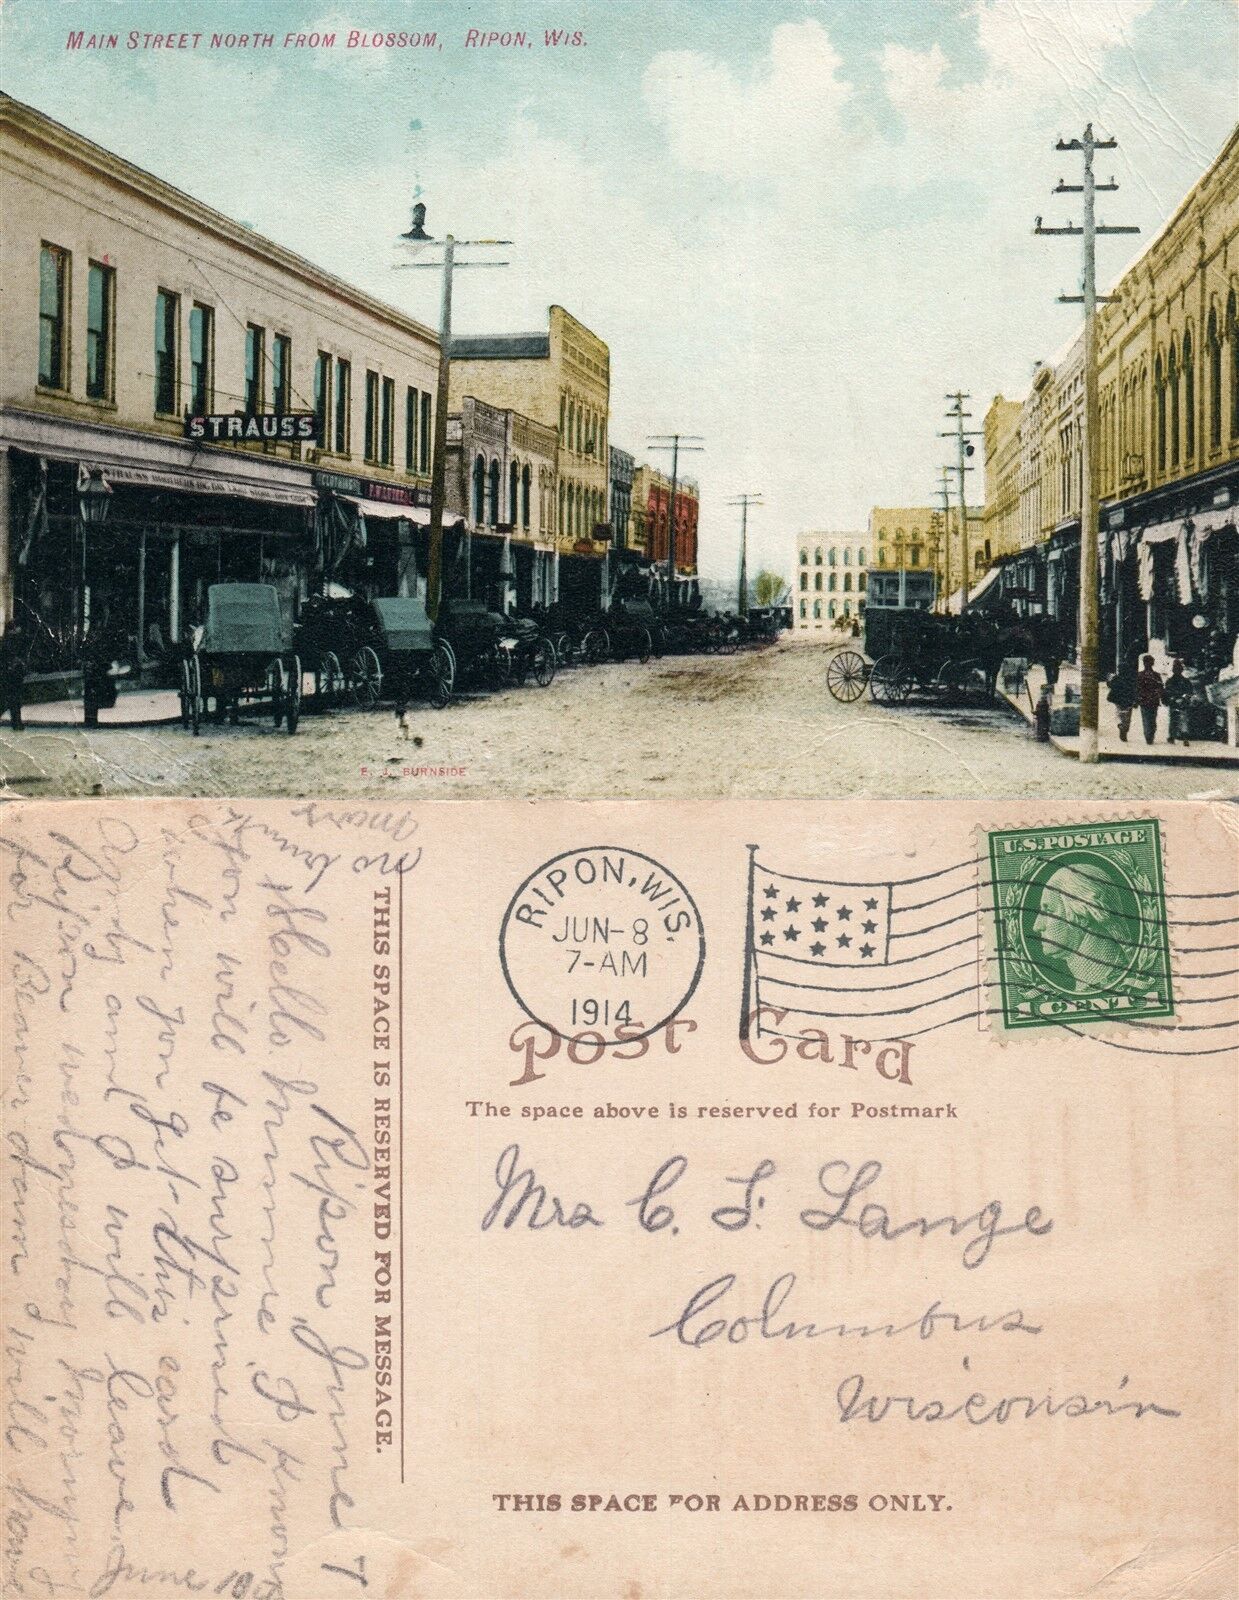 MAIN STREET NORTH FROM BLOSSOM, RIPON, WIS.
STRAUSS
CLOTHING
E. J. BURNSIDE
Ripon June 7
Hello Minnie I know
you will be surprised
when you get this card
Andy and I will leave
Ripon wednesday morning
June 10
for Beaver dam, will
no
THIS SPACE IS RESERVED FOR MESSAGE.
RIPON, WIS.
JUN-8
7-AM
1914
U.S. POSTAGE
1 CENT 1
Post Card
The space above is reserved for Postmark
Mrs C. F. Lange
Columbus
Wisconsin
THIS SPACE FOR ADDRESS ONLY.